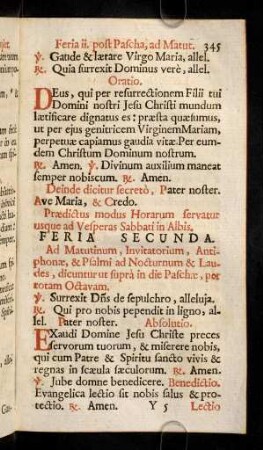 Feria ii. post Pascha, ad Matut. 345
℣. Gaude & lætare Virgo Maria, allel.
℟. Quia surrexit Dominus verè, allel.
Oratio.
DEus, qui per resurrectionem Filii tui
Domini nostri Jesu Christi mundum
lætificare dignatus es: præsta quæsumus,
ut per ejus genitricem VirginemMariam,
perpetuæ capiamus gaudia vitæ. Per eum-
dem Christum Dominum nostrum.
℟. Amen. ℣. Divinum auxilium maneat
semper nobiscum. ℟. Amen.
Deinde dicitur secretò, Pater noster.
Ave Maria, & Credo.
Prædictus modus Horarum servatur
usque ad Vesperas Sabbati in Albis.
FERIA SECUNDA.
Ad Matutinum, Invitatorium, Anti-
phonæ, & Psalmi ad Nocturnum & Lau-
des, dicuntur ut suprà in die Paschæ, per
totam Octavam.
℣. Surrexit Dñs de sepulchro, alleluja.
℟. Qui pro nobis pependit in ligno, al-
lel. Pater noster. Absolutio.
EXaudi Domine Jesu Christe preces
servorum tuorum, & miserere nobis,
qui cum Patre & Spiritu sancto vivis &
regnas in sæcula sæculorum. ℟. Amen.
℣. Jube domne benedicere. Benedictio.
Evangelica lectio sit nobis salus & pro-
tectio. ℟. Amen. Y 5 Lectio